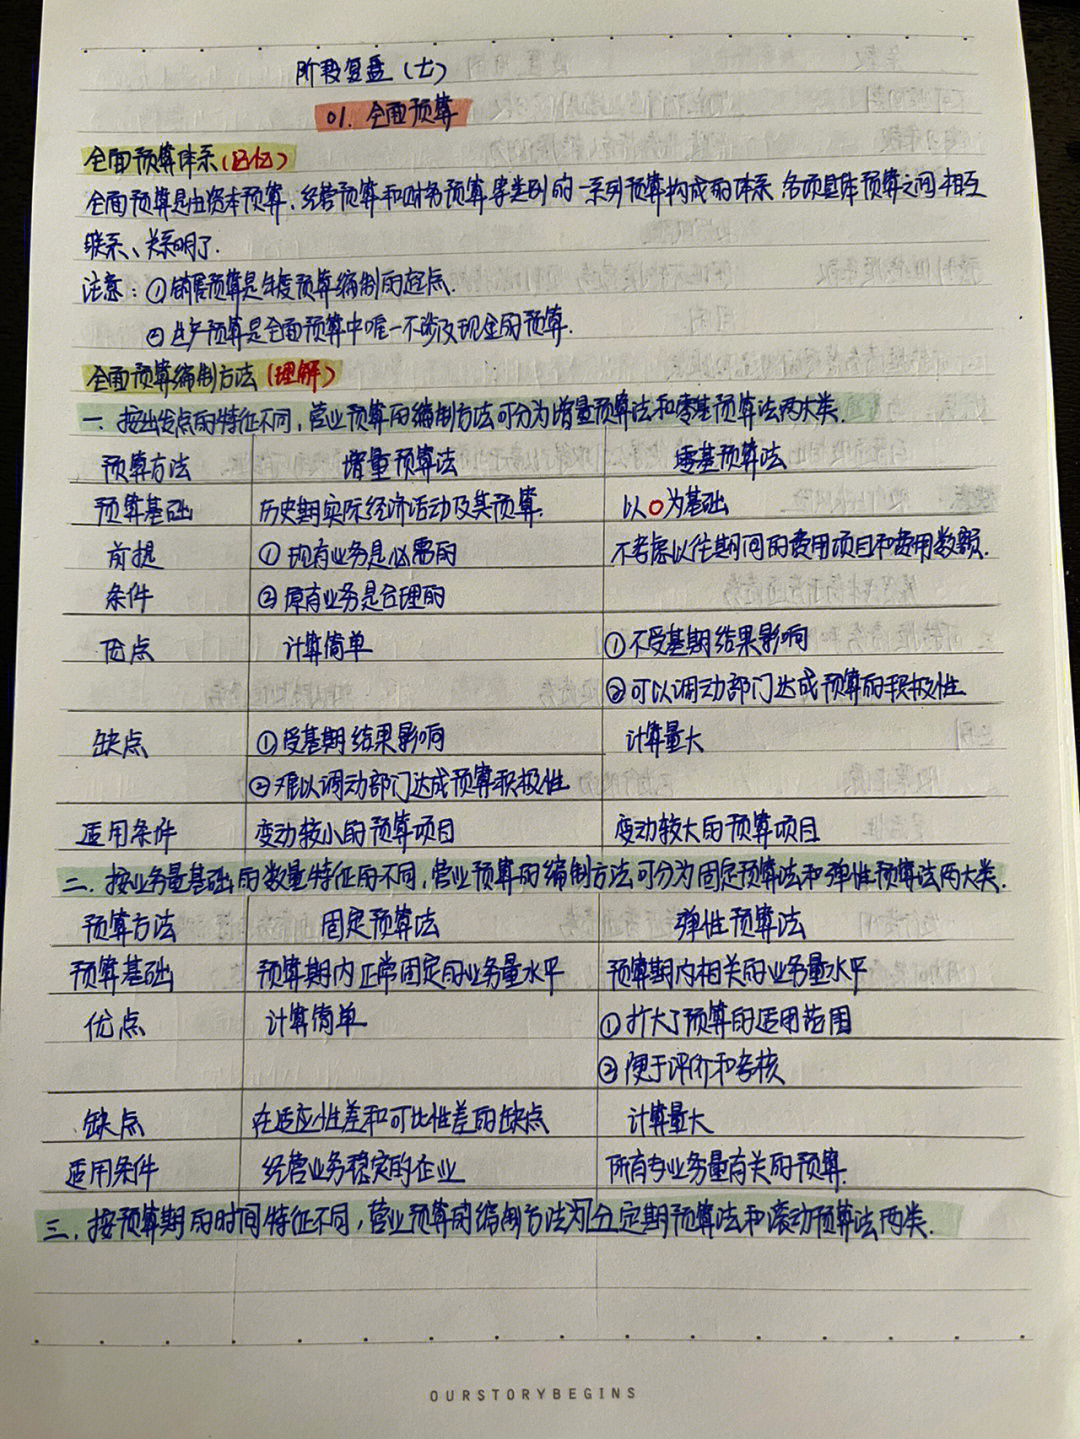 阶段复盘(七)
01. 全面预算
全面预算体系(记忆)
全面预算是由资本预算、经营预算和财务预算等类别的一系列预算构成的体系,各项具体预算之间相互
联系、关系明了.
注意:①销售预算是年度预算编制的起点.
②生产预算是全面预算中唯一不涉及现金的预算.
全面预算编制方法(理解)
一、按出发点的特征不同,营业预算的编制方法可分为增量预算法和零基预算法两大类.
预算方法 增量预算法 零基预算法
预算基础 历史期实际经济活动及其预算. 以0为基础
前提 ①现有业务是必需的 不考虑以往期间的费用项目和费用数额.
条件 ②原有业务是合理的
优点 计算简单 ①不受基期结果影响
②可以调动部门达成预算的积极性
缺点 ①受基期结果影响 计算量大
②难以调动部门达成预算积极性
适用条件 变动较小的预算项目 变动较大的预算项目
二、按业务量基础的数量特征的不同,营业预算的编制方法可分为固定预算法和弹性预算法两大类.
预算方法 固定预算法 弹性预算法
预算基础 预算期内正常固定的业务量水平 预算期内相关的业务量水平
优点 计算简单 ①扩大了预算的适用范围
②便于评价和考核
缺点 在适应性差和可比性差的缺点 计算量大
适用条件 经营业务稳定的企业 所有与业务量有关的预算.
三、按预算期的时间特征不同,营业预算的编制方法可分定期预算法和滚动预算法两类.
OURSTORYBEGINS